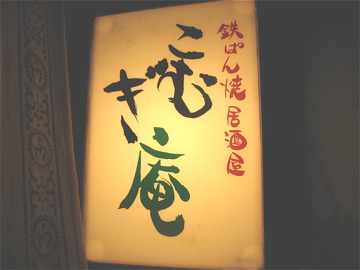 鉄ぱん焼居酒屋
こむぎ庵